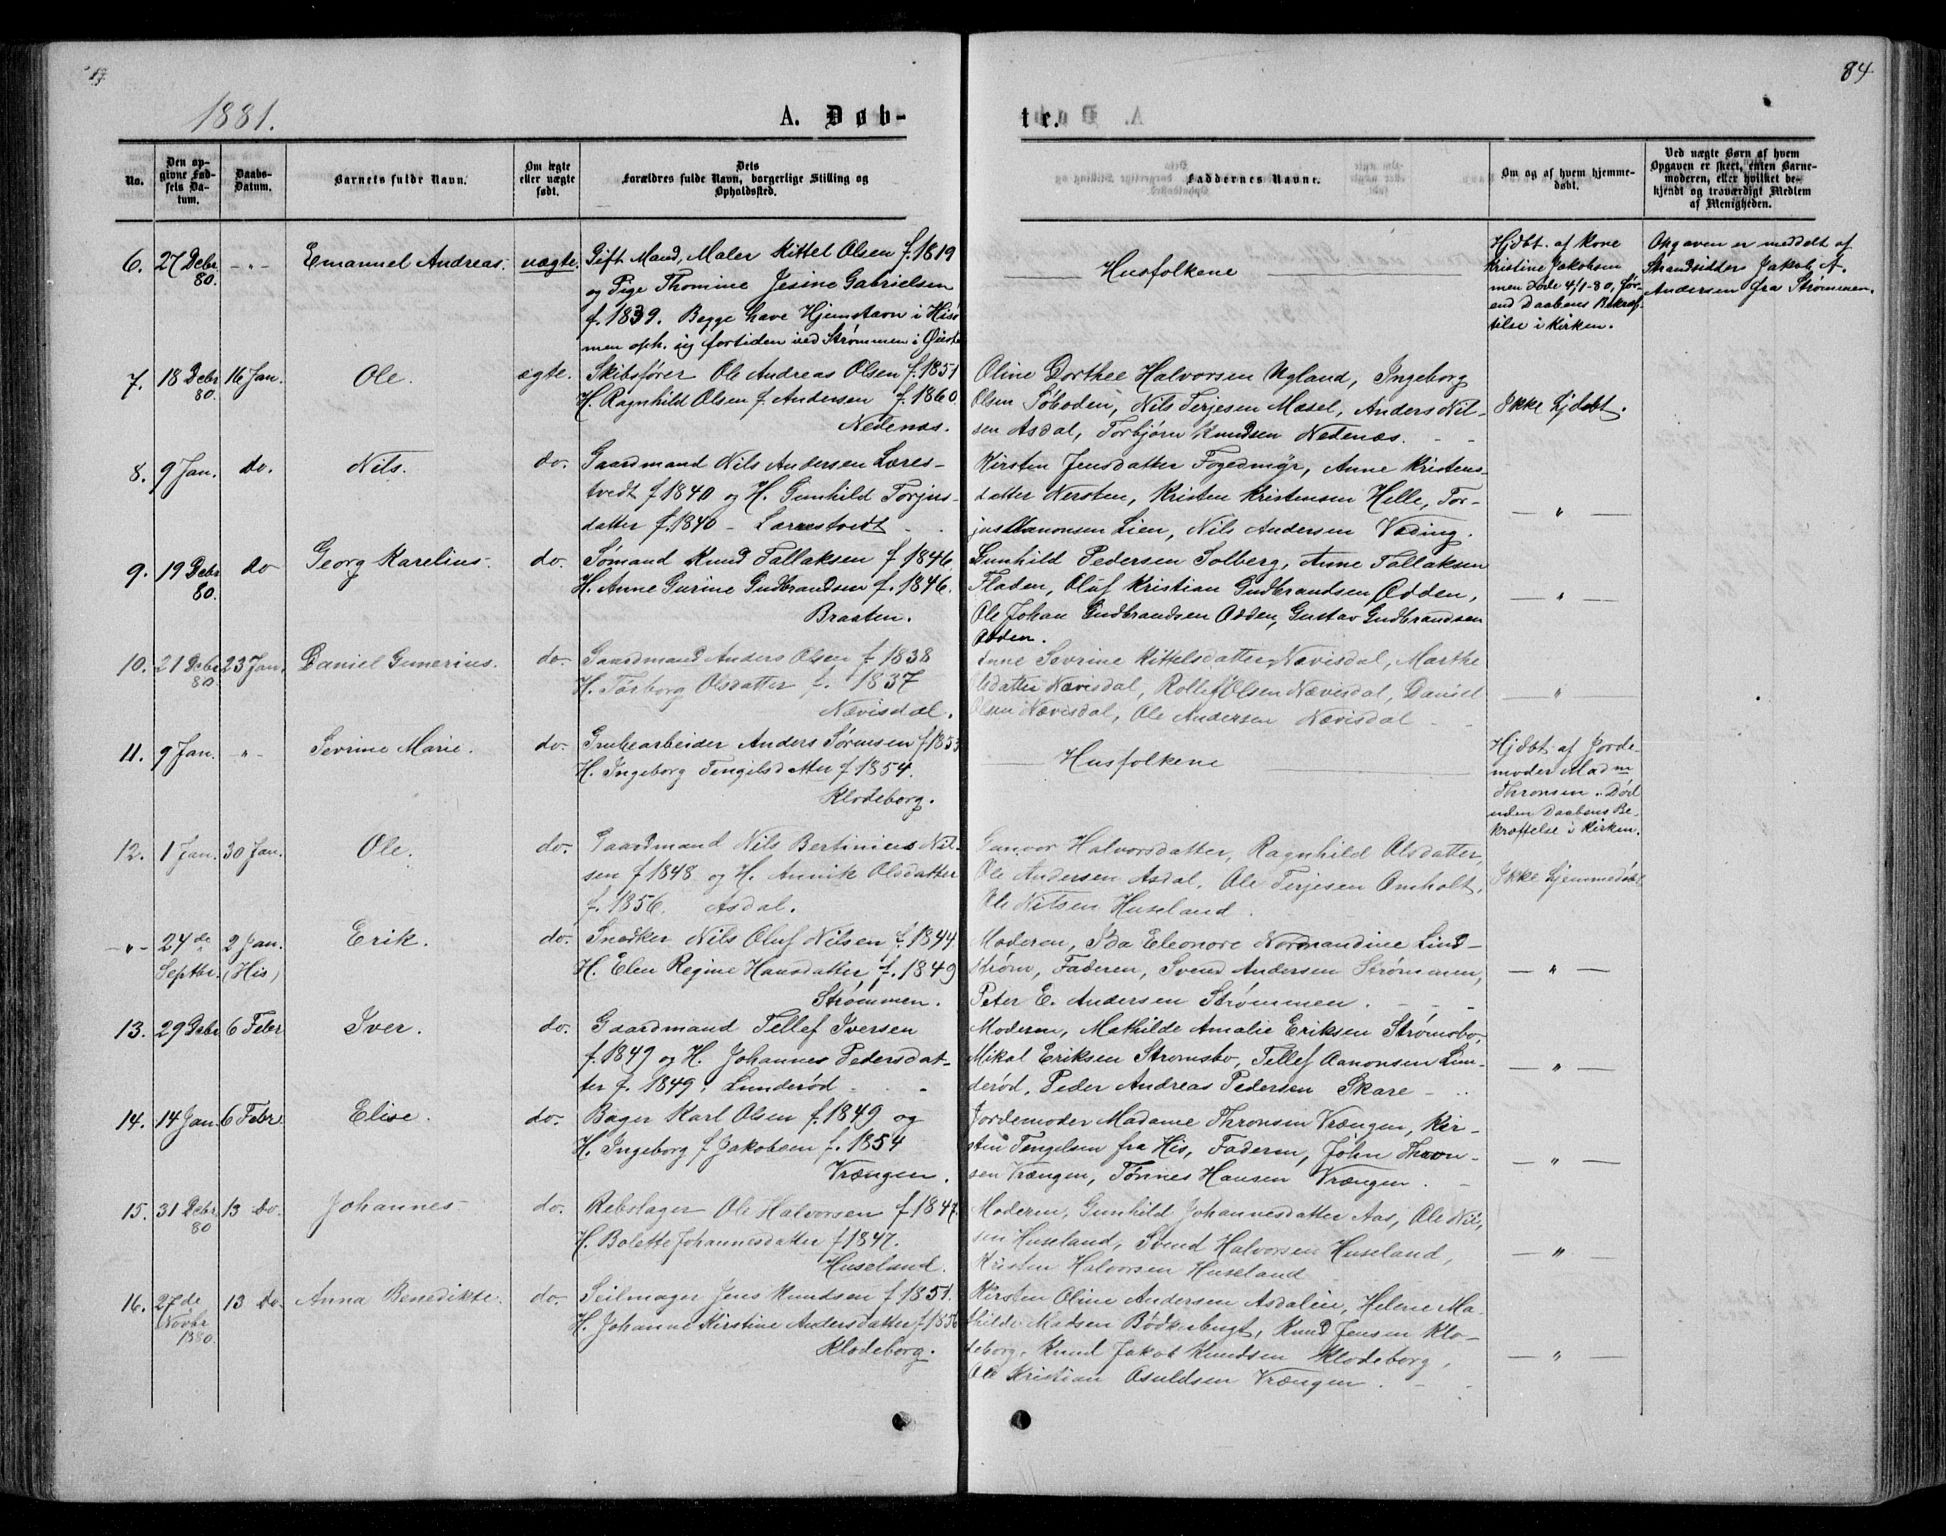 84
1881.
A. Døb-
te.
No.
Den op-
givne Fød-
sels Da-
tum.
Daabs-
Datum.
Barnets fulde Navn.
Om ægte
eller uægte
født.
Dets
Forældres fulde Navn, borgerlige Stilling og
Opholdssted.
Faddernes Navne.
Om og af hvem hjemme-
døbt.
Ved uægte Børn af hvem
Opgaven er skeet, enten Barne-
moderen, eller hvilket be-
kjendt og troværdigt Medlem
af Menigheden.
6. 27 Debr 80. -"- Emanuel Andreas. uægte.
Gift Mand, Maler Kittel Olsen f. 1819
og Pige Thomine Jesine Gabrielsen
f. 1839. Begge have Hjemstavn i His
men oph. sig fortiden ved Strømmen i
Husfolkene
Hjdbt. af Kone
Kristine Jakobsen
men Døde 4/1-80, før-
end Daabens Bekræf-
telse i Kirken.
Opgaven er meddelt af
Strandsidder Jakob A.
Andersen fra Strømmen.
7. 18 Debr 80. 16 Jan. Ole. ægte.
Skibsfører Ole Andreas Olsen f. 1851
H. Ragnhild Olsen f. Andersen f. 1860.
Nedenæs.
Oline Dorthee Halvorsen Ugland, Ingeborg
Olsen Søboden, Nils Terjesen Mæsel, Anders Nil-
sen Asdal, Torbjørn Knudsen Nedenæs.
Ikke Hjdbt.
8. 9 Jan. do. Nils. do.
Gaardmand Nils Andersen Læres-
tvedt f 1840 og H. Gunhild Torjus-
datter f. 1840 - Lærestvedt
Kirsten Jensdatter Fogedmyr, Anne Kristens-
datter Nersten, Kristen Kristensen Helle, Tor-
jus Aanonsen Lien, Nils Andersen Vöding.
— " —
9. 19 Debr 80. do Georg Karelius. do.
Sømand Knud Tallaksen f. 1846.
H. Anne Gurine Gudbrandsen f. 1846.
Braaten.
Gunhild Pedersen Solberg, Anne Tallaksen
Fladen, Oluf Kristian Gudbrandsen Odden,
Ole Johan Gudbrandsen Odden, Gustav Gudbrandsen
Odden.
— " —
10. 21 Debr 80. 23 Jan. Daniel Gunerius. do.
Gaardmand Anders Olsen f. 1838
H. Torborg Olsdatter f. 1837
Nævisdal.
Anne Sevrine Kittelsdatter Nævisdal, Marthe
Olsdatter Nævisdal, Rollef Olsen Nævisdal, Daniel
Olsen Nævisdal, Ole Andersen Nævisdal
— " —
11. 9 Jan. -"- Sevrine Marie. do.
Grubearbeider Anders Sørensen f 1853
H. Ingeborg Tengilsdatter f 1854.
Klodeborg.
Husfolkene
Hjdbt. af Jorde-
moder Madm
Thronsen. Död
uden Daabens Be-
kræftelse i Kirken.
12. 1 Jan. 30 Jan. Ole. do.
Gaardmand Nils Bertinius Nil-
sen f 1848 og H. Annik Olsdatter
f. 1856. Asdal.
Gunvor Halvorsdatter, Ragnhild Olsdatter,
Ole Andersen Asdal, Ole Terjesen Omholt,
Ole Nilsen Huseland.
Ikke Hjemmedöbt
-"- 24 de Septbr. 2 Jan. (His) Erik. do.
Snedker Nils Oluf Nilsen f. 1844.
H. Elen Regine Hansdatter f. 1849
Strømmen.
Moderen, Ida Eleonore Nordmandine Lind-
strøm, Faderen, Svend Andersen Strømmen,
Peter E. Andersen Strømmen.
— " —
13. 29 Debr 6 Febr Iver. do.
Gaardmand Tellef Iversen
f. 1849 og H. Johannes Pedersdat-
ter f. 1849. Lunderød
Moderen, Mathilde Amalie Eriksen Strømsbo,
Mikal Eriksen Strømsbo, Tellef Aanonsen Lun-
derød, Peder Andreas Pedersen Skare
— " —
14. 14 Jan. 6 Febr. Elise. do.
Bager Karl Olsen f. 1849 og
H. Ingeborg f Jakobsen f. 1854
Vrængen.
Jordemoder Madame Thronsen Vrængen, Kir-
stine Tengelsen fra His, Faderen, John Thron-
sen Vrængen, Tönnes Hansen Vrængen.
— " —
15. 31 Debr. 80 13 Do. Johannes. do.
Rebslager Ole Halvorsen f 1847.
H. Bolette Johannesdatter f 1847.
Huseland.
Moderen, Gunhild Johannesdatter Aas, Ole Nil-
sen Huseland, Svend Halvorsen Huseland,
Kristen Halvorsen Huseland
— " —
16. 27 de Novbr 1880. 13 Do. Anna Benedikte. do.
Seilmager Jens Knudsen f 1851.
H. Johanne Kirstine Andersdatter f 1856
Klodeborg.
Kirsten Oline Andersen Asdalen, Helene Ma-
thilde Madsen Bødkerbugt, Knud Jensen Klo-
deborg, Knud Jakob Knudsen Klodeborg,
Ole Kristian Osuldsen Vrængen.
— " —